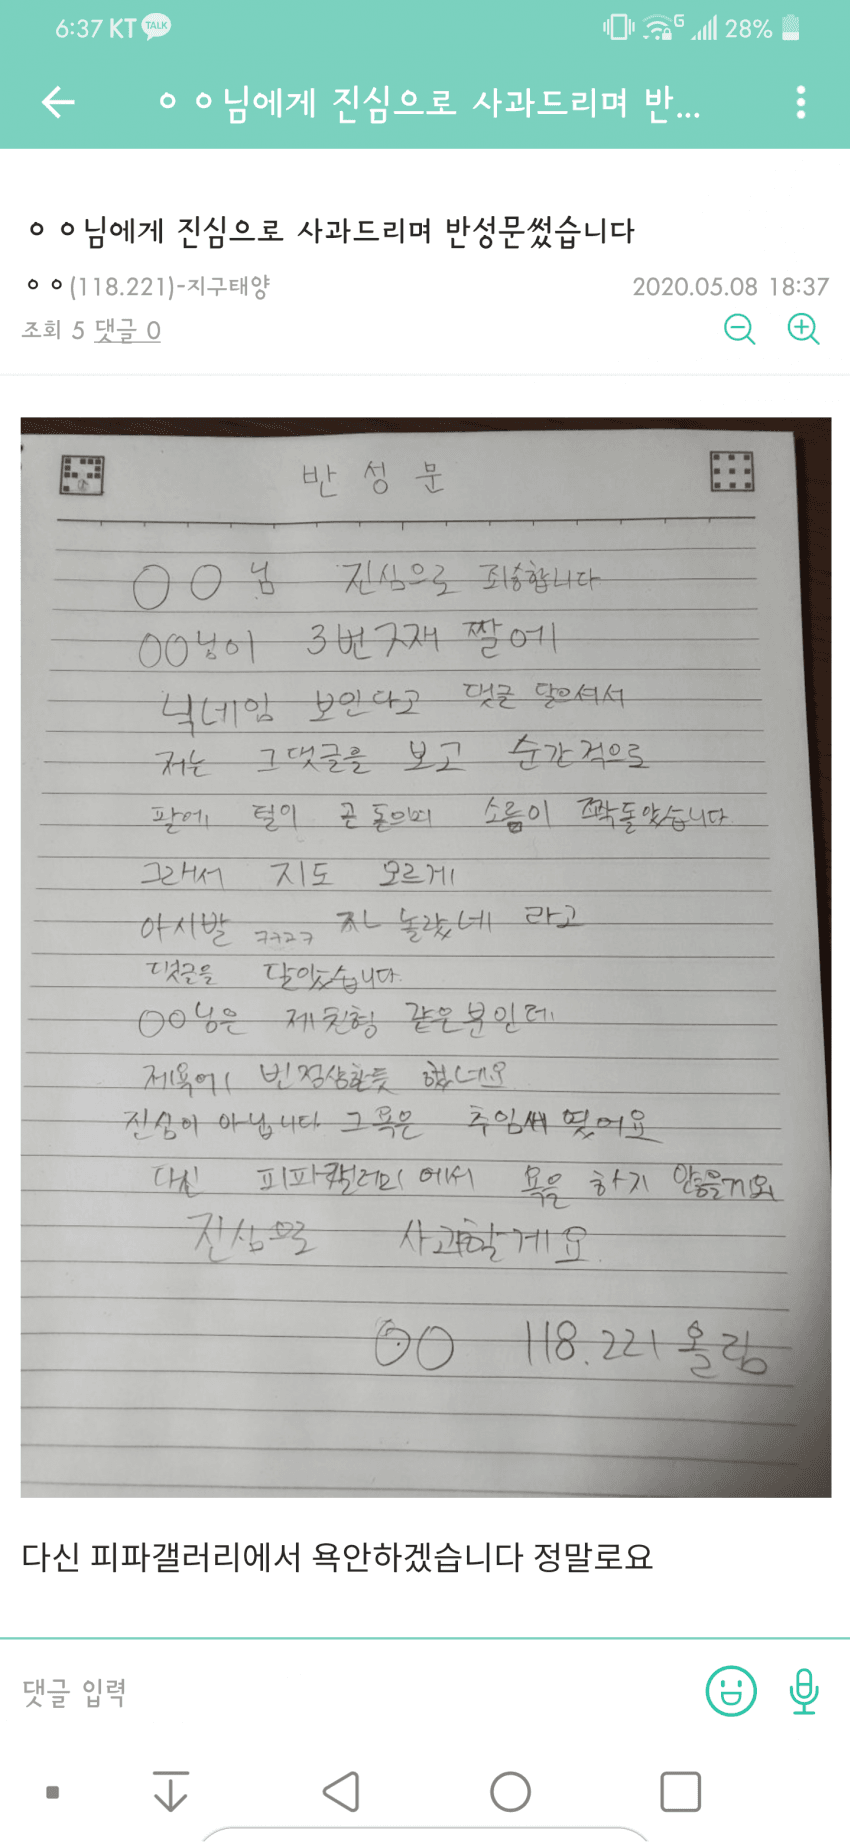 6:37 KT TALK G 28%
ㅇㅇ님에게 진심으로 사과드리며 반...
ㅇㅇ님에게 진심으로 사과드리며 반성문썼습니다
ㅇㅇ(118.221)-지구태양 2020.05.08 18:37
조회 5 댓글 0
반성문
○○님 진심으로 죄송합니다
○○님이 3번째 짤에
닉네임 보인다고 댓글 달으셔서
저는 그댓글을 보고 순간적으로
팔에 털이 곤 돋으며 소름이 쫙돋았습니다
그래서 지도 모르게
아시발 ㅋㅋㅋㅋ 놀랐네 라고
댓글을 달았습니다.
○○님은 제친형 같은분인데
제욕에 빈정상한듯 했네요
진심이 아닙니다 그 욕은 추임새 였어요
다신 피파갤러리에서 욕을 하지 않을게요
진심으로 사과할게요.
○○ 118.221 올림
다신 피파갤러리에서 욕안하겠습니다 정말로요
댓글 입력